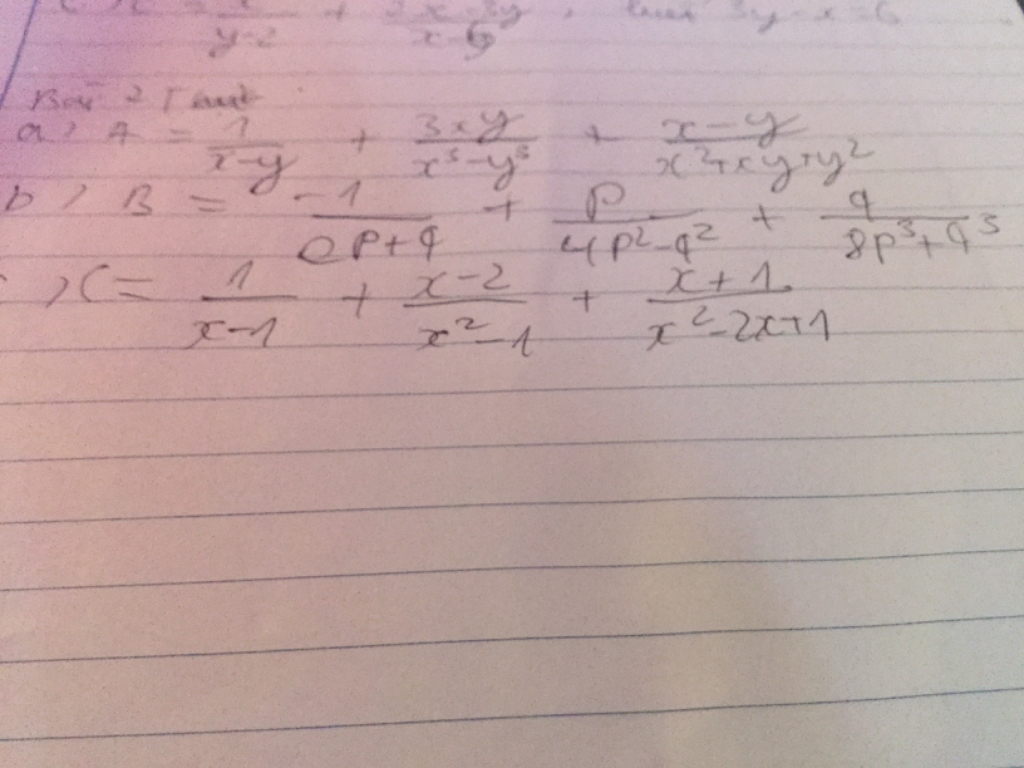 y-2 x-6
Bài 2 Tính
a) A = 1/(x-y) + 3xy/(x³-y³) + (x-y)/(x²+xy+y²)
b) B = -1/(2p+q) + p/(4p²-q²) + q/(8p³+q³)
) C = 1/(x-1) + (x-2)/(x²-1) + (x+1)/(x²-2x+1)